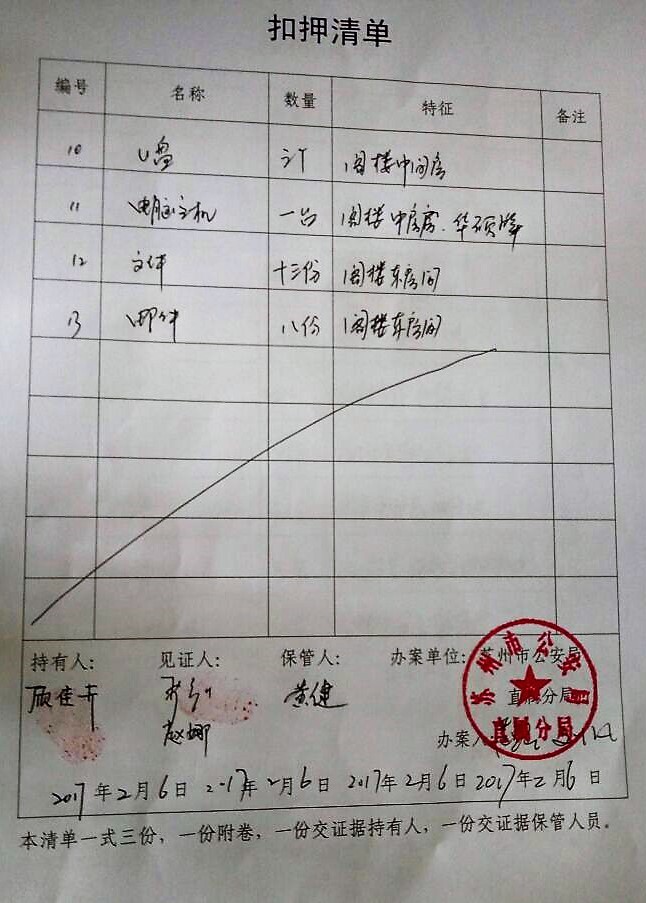 扣押清单
编号 名称 数量 特征 备注
10 U盘 阁楼中间房
11 电脑主机 一台 阁楼中间房.华硕牌
12 文件 十三份 阁楼东房间
13 邮件 八份 阁楼东房间
持有人: 见证人: 保管人: 办案单位: 苏州市公安局
顾佳卉 黄健 直属分局
赵娜 办案人
苏州市公安局
直属分局
2017年2月6日 2017年2月6日 2017年2月6日 2017年2月6日
本清单一式三份，一份附卷，一份交证据持有人，一份交证据保管人员。